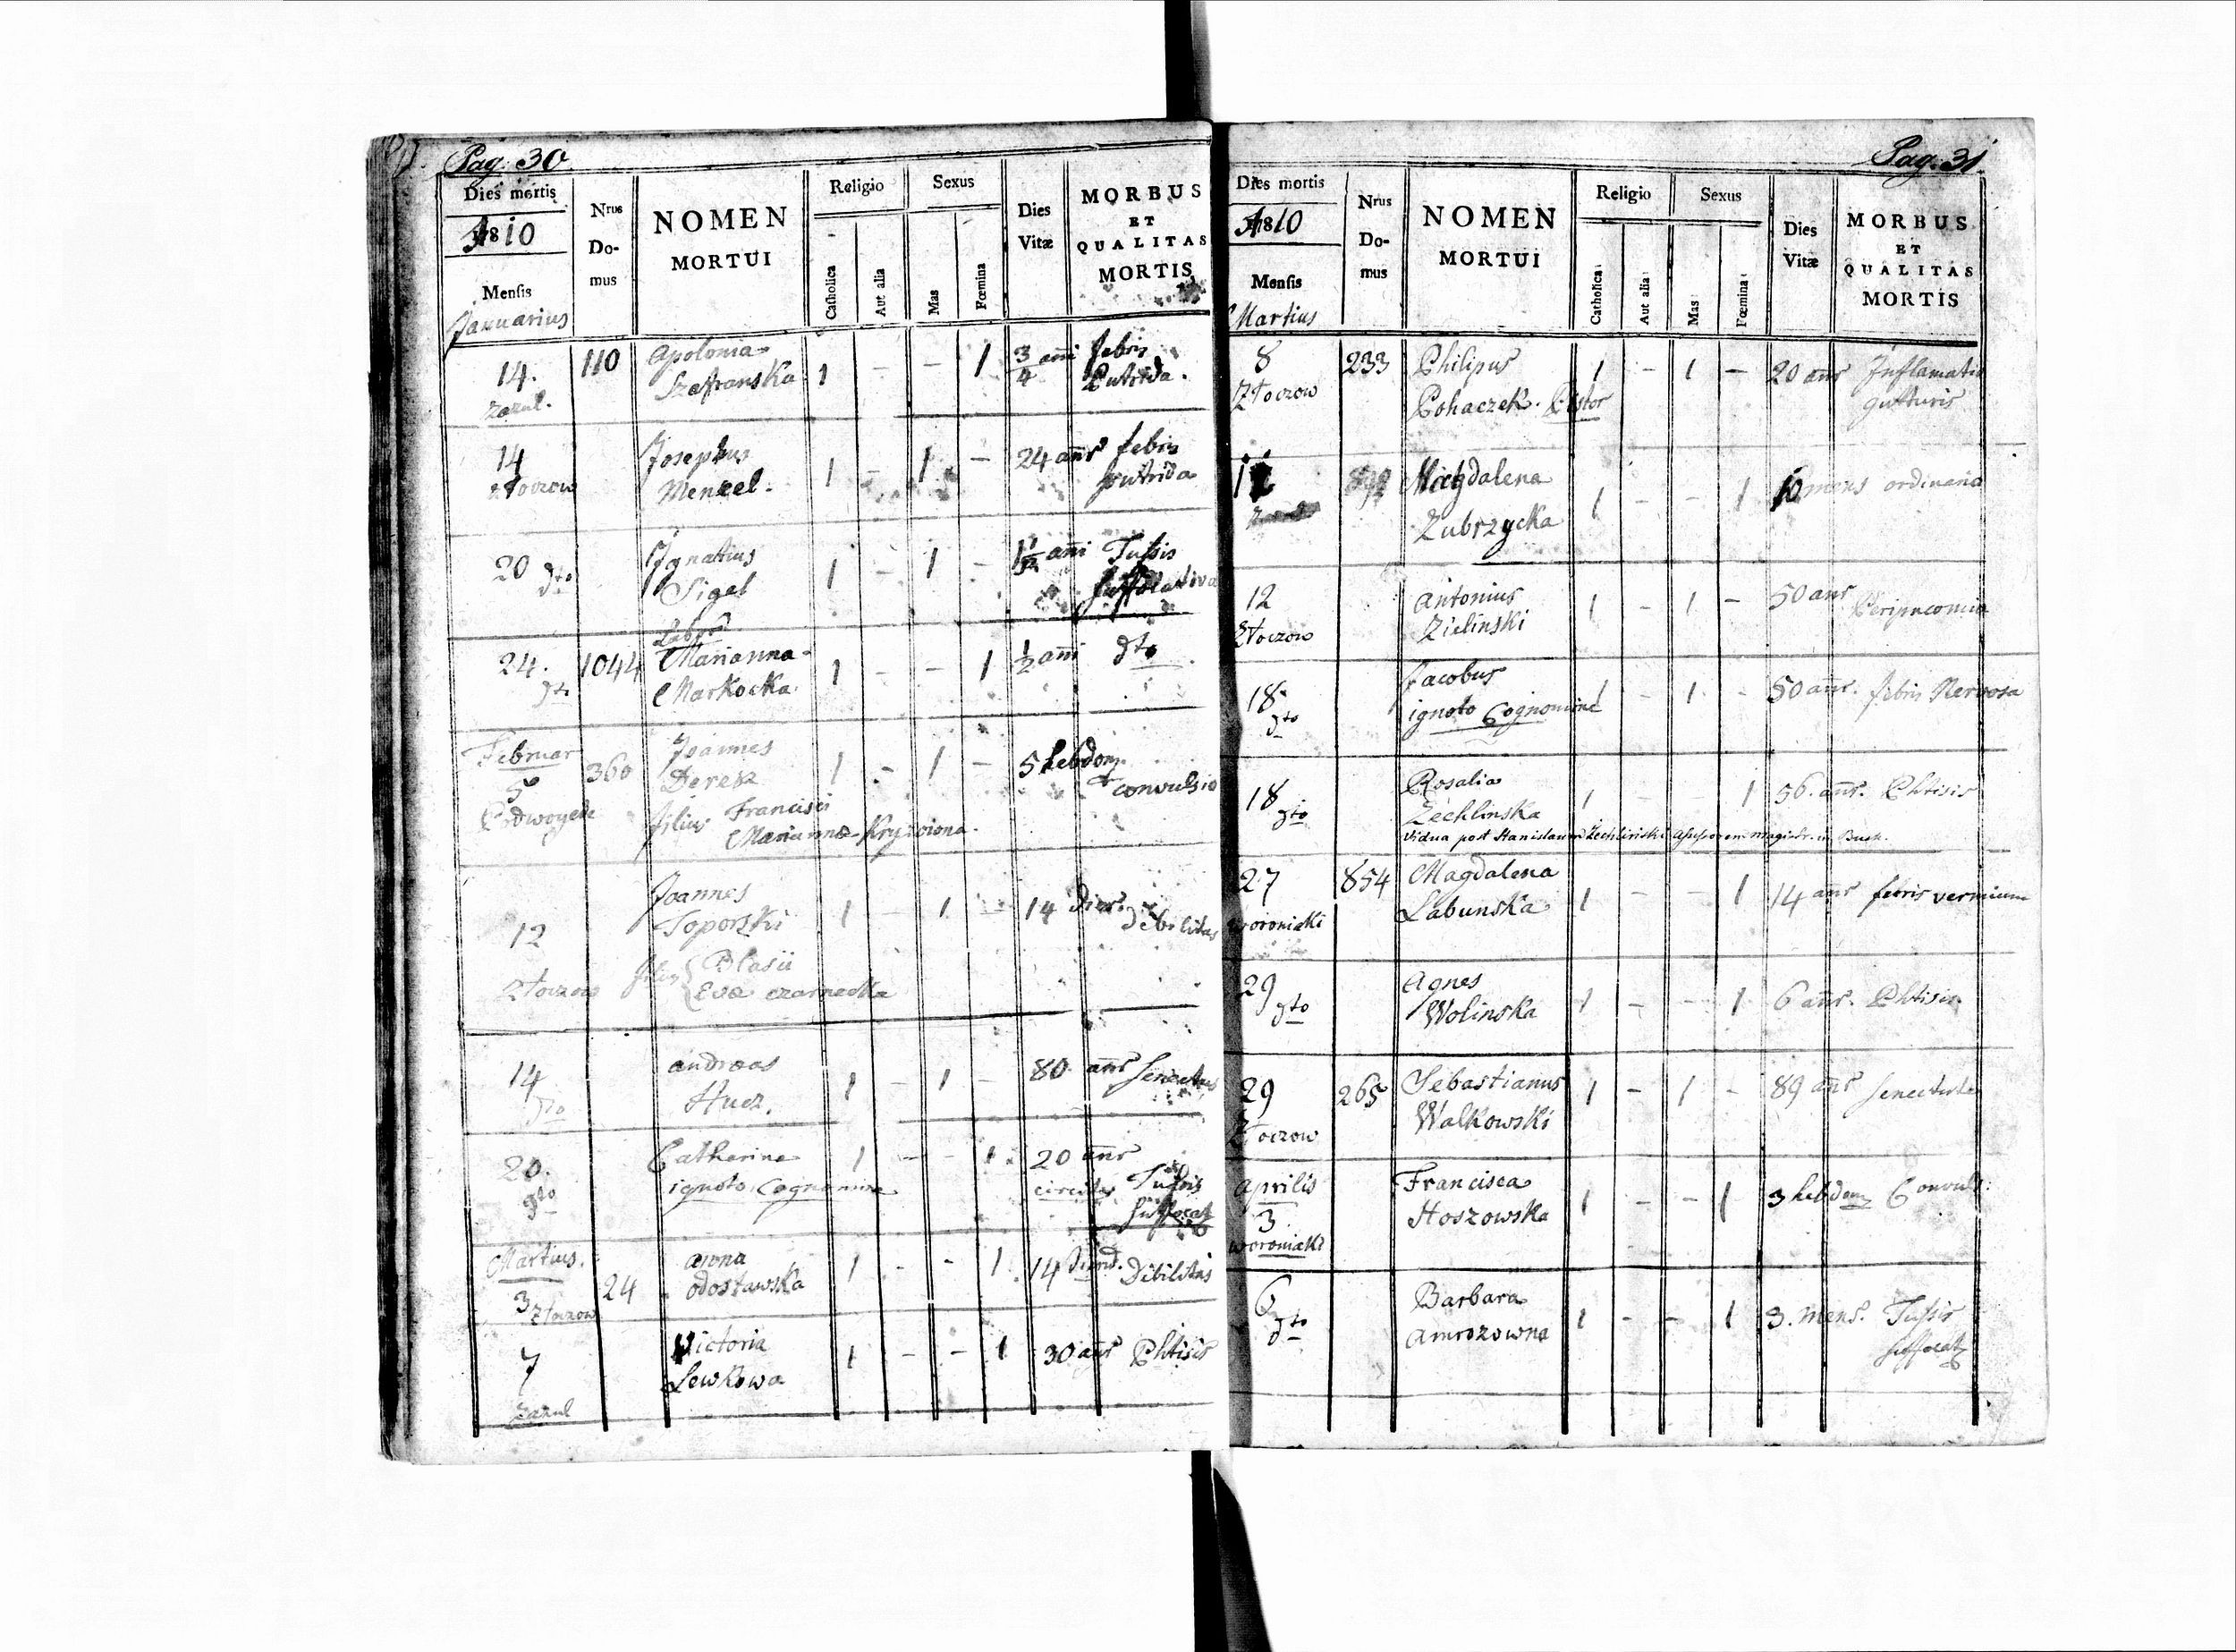 Pag: 30.
Dies mortis
1810
Mensis
Januarius
Nrus
Do-
mus
NOMEN
MORTUI
Religio
Catholica
Aut alia
Sexus
Mas
Fœmina
Dies
Vitæ
MORBUS
ET
QUALITAS
MORTIS
14. 110 Apolonia 1 - - 1 3/4 añi febris
Zazul. Szafranska Putrida.
14 Josephus 1 - 1 - 24 añr febris
Złoczow Menzel. putrida
20 dto Ignatius 1 - 1 - 1 1/2 añi Tussis
Sigel suffocativa
24. 1044 Marianna 1 - - 1 1/2 añi dto
dto Markocka.
Februar 360 Joannes 1 - 1 - 5 hebdom.
5 Derek convulsio
filius Francisci
Marianna
12 Joannes 1 - 1 - 14 dier. Debilitas
Toporski
Złoczow filius Blasii
Eva czarnecka
14 Andreas 1 - 1 - 80 añr Senectus
dto Hucz.
20. Catharina 1 - - 1. 20 añr
dto ignoto Cognomine circiter Tussis
suffocat
Martius. 24 Anna 1 - - 1. 14 dier. Debilitas
3 Złoczow odostawska
7 Victoria 1 - - 1 30 añr Phtisis
Zazul Lewkowa
Pag: 31.
Dies mortis
1810
Mensis
Martius
Nrus
Do-
mus
NOMEN
MORTUI
Religio
Catholica
Aut alia
Sexus
Mas
Fœmina
Dies
Vitæ
MORBUS
ET
QUALITAS
MORTIS
8 233 Philipus 1 - 1 - 20 añr Inflamatio
Złoczow Pohaczek. Pistor gutturis
Magdalena 1 - - 1 10 mens ordinaria
Zubrzycka
12 Antonius 1 - 1 - 50 anr
Złoczow Zielinski
18. Jacobus 1 - 1 - 50 añr. febris Nervosa
dto ignoto Cognomine
18 Rosalia 1 - - 1 56. añr. Phtisis
dto Zechlinska
Vidua post Stanislaum Zechlinski Assessorem magistr. in Busk.
27 854 Magdalena 1 - - 1 14 anr febris vermium
woroniaki Labunska
29 Agnes 1 - - 1 6 añr. Phtisis.
dto Wolinska
29 265 Sebastianus 1 - 1 - 89 añr Senectute
Złoczow Walkowski
Aprilis Francisca 1 - - 1 3 hebdom Convuls:
3 Hoszowska
woroniaki
6 Barbara 1 - - 1 3. mens. Tussis
dto Amrozowna suffocat